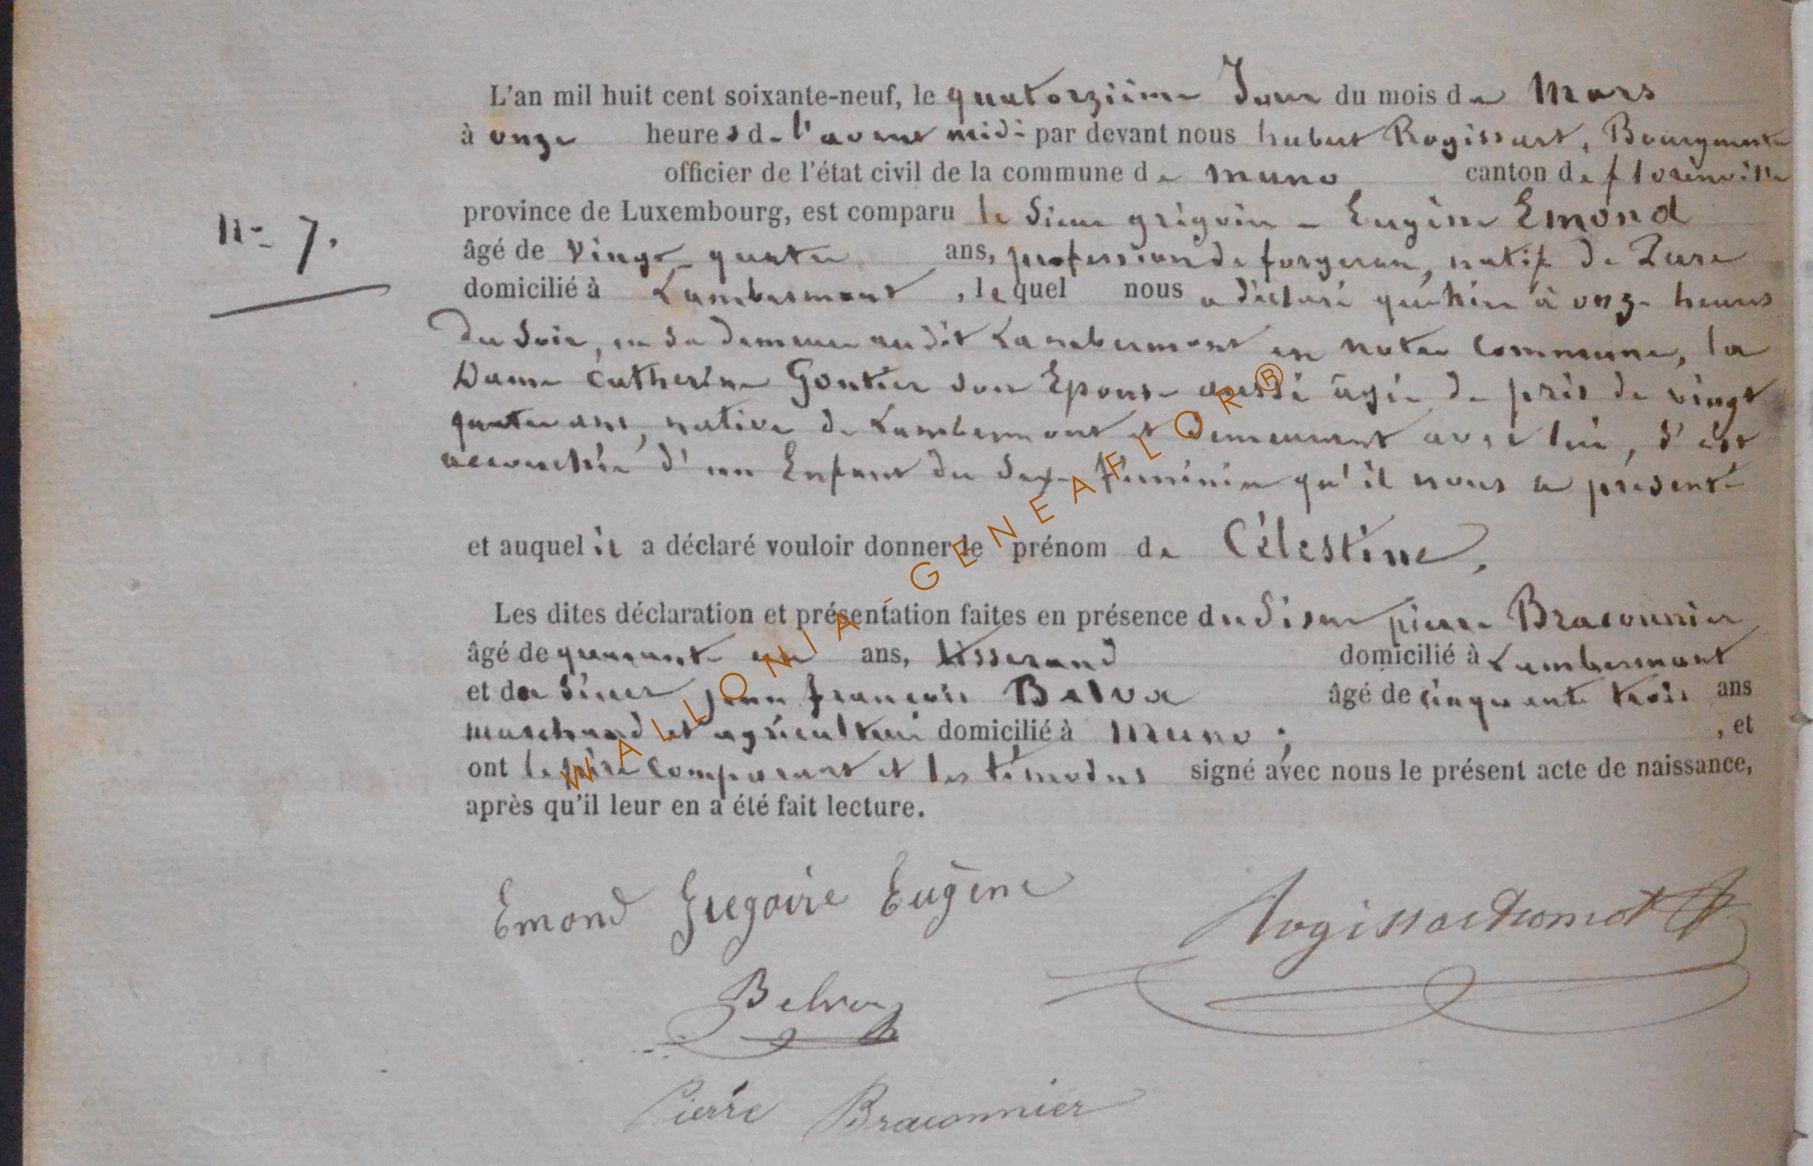 L'an mil huit cent soixante-neuf, le quatorzième Jour du mois de Mars
à onze heures de l'avant midi par devant nous hubert Rogissart, Bourgmestre
officier de l'état civil de la commune de muno canton de florenville
province de Luxembourg, est comparu le Sieur grégoire - Eugène Emond
N° 7.
âgé de vingt quatre ans, profession de forgeron, natif de
domicilié à Lambermont, lequel nous a déclaré qu'hier à onze heures
du Soir, en Sa demeure audit Lambermont en notre commune, la
Dame catherine Gontier son Epouse aussi âgée de près de vingt
quatre ans, native de Lambermont et demeurant avec lui, s'est
accouchée d'un Enfant du Sexe féminin qu'il nous a présenté
et auquel il a déclaré vouloir donner le prénom de Célestine,
Les dites déclaration et présentation faites en présence du Sieur pierre Braconnier
âgé de quarante un ans, tisserand domicilié à Lambermont
et du Sieur jean françois Belva âgé de cinquante trois ans
marchand et agriculteur domicilié à Muno ; , et
ont le père comparant et les témoins signé avec nous le présent acte de naissance,
après qu'il leur en a été fait lecture.
Emond Gregoire Eugène
Belva
Pierre Braconnier
WALLONIA-GENEAFLOR®